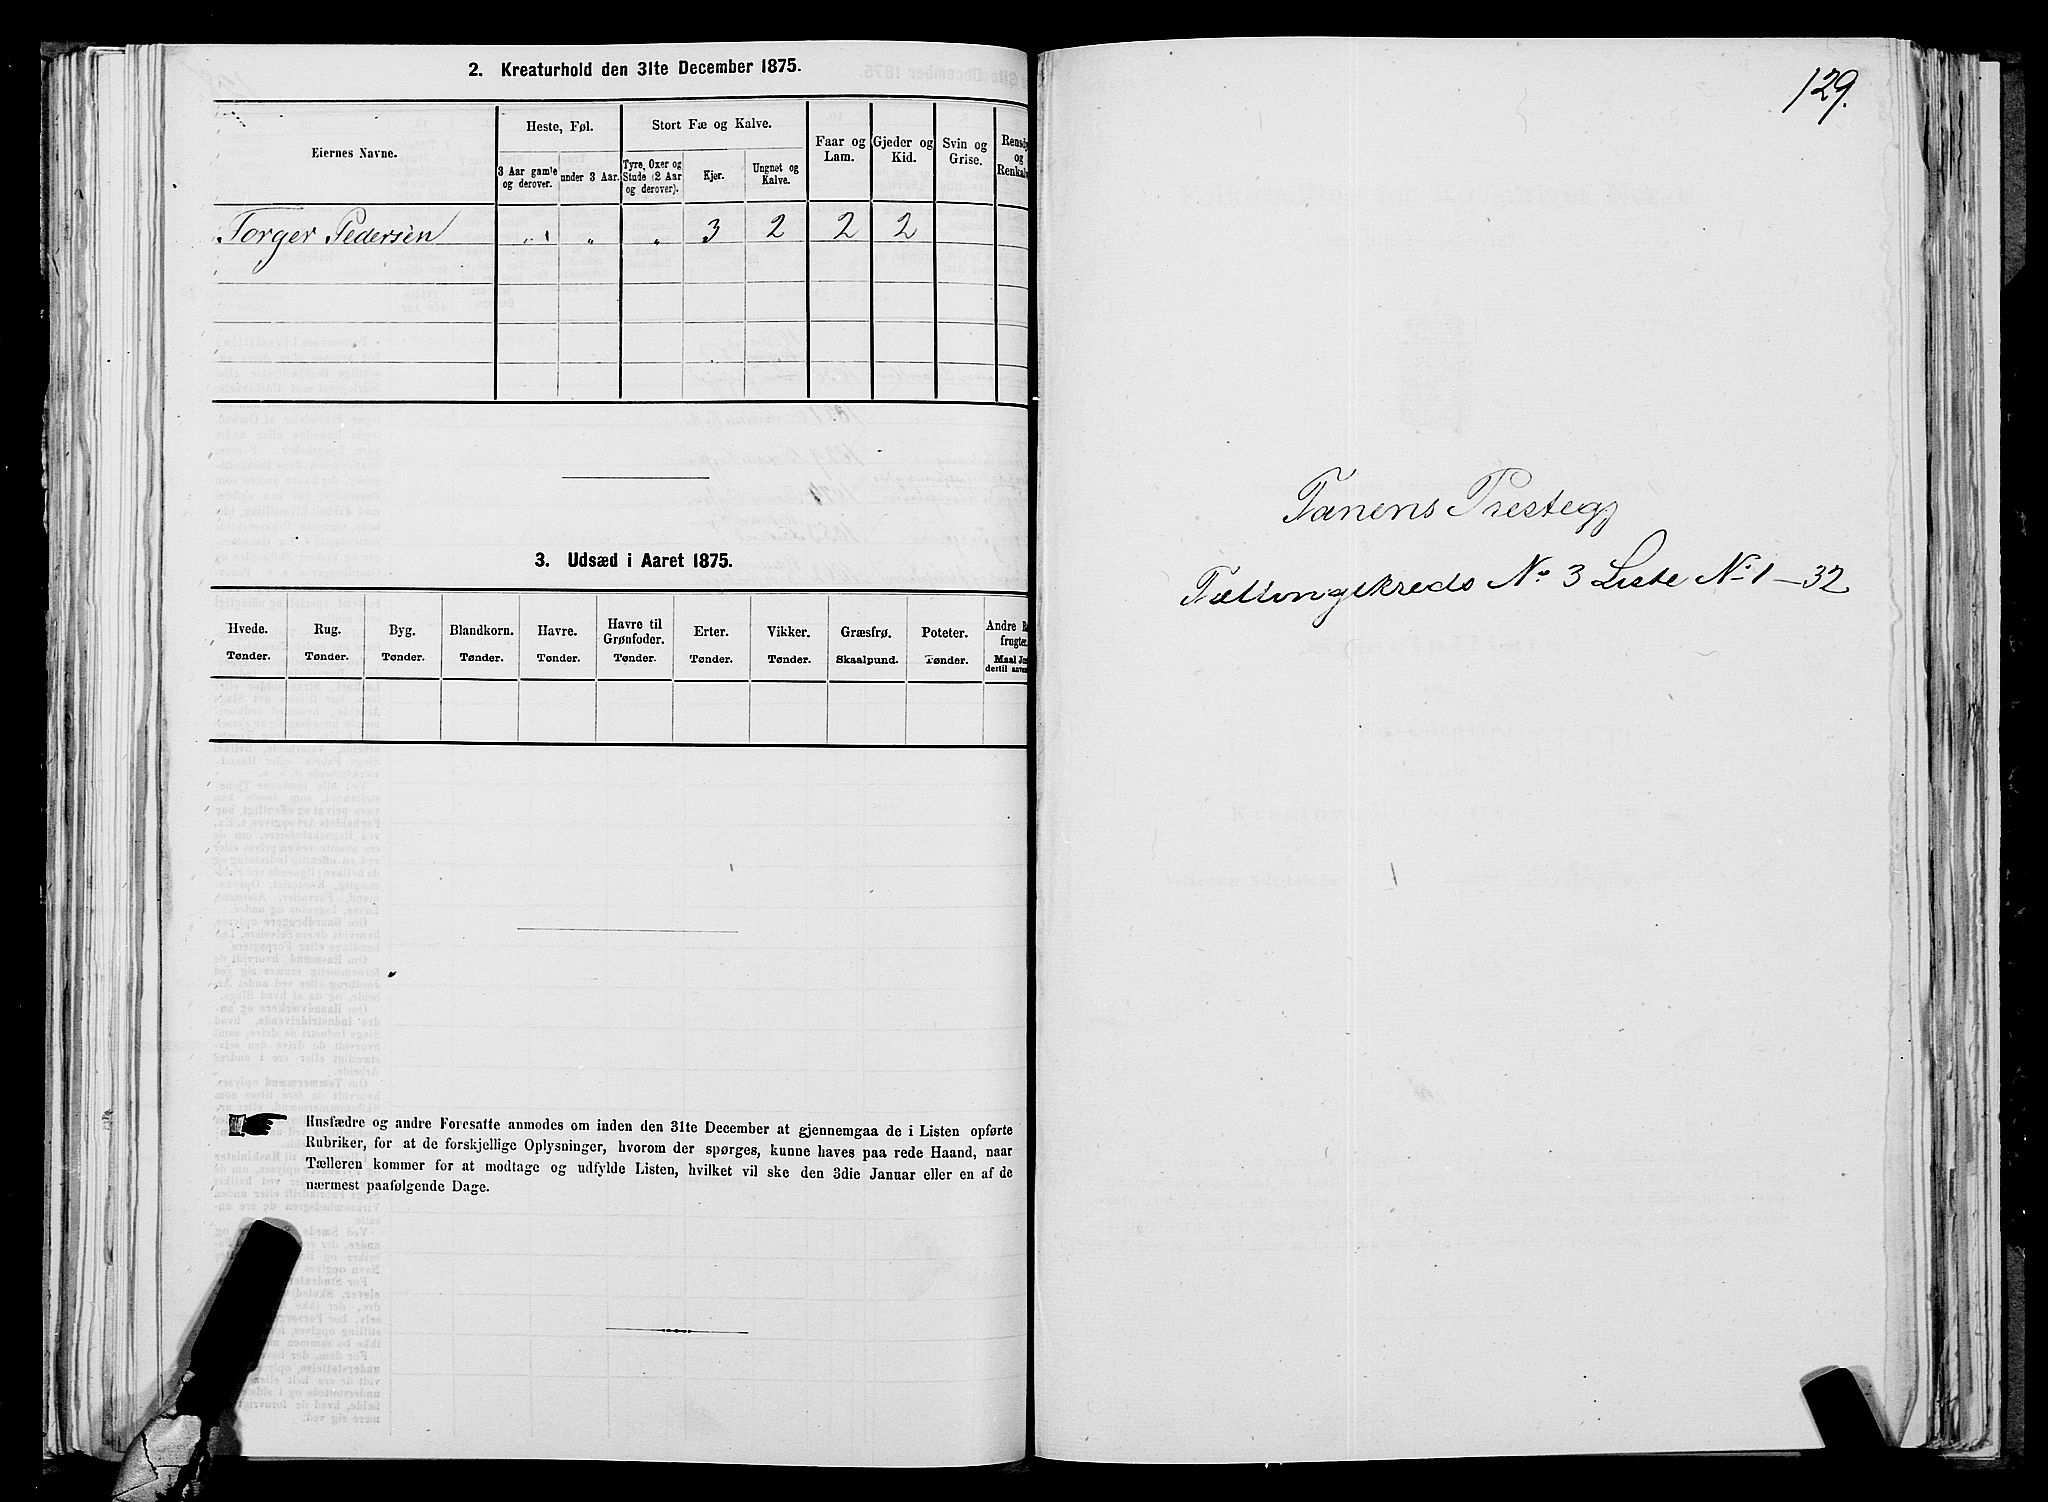 2. Kreaturhold den 31te December 1875.
Eiernes Navne.
Heste, Føl.
3 Aar gamle og derover.
under 3 Aar.
Stort Fæ og Kalve.
Tyre, Oxer og Stude (2 Aar og derover).
Kjør.
Ungnøt og Kalve.
Faar og Lam.
Gjeder og Kid.
Svin og Grise.
og
Torger Pedersen " " " 3 2 2 2
3. Udsæd i Aaret 1875.
Hvede. Rug. Byg. Blandkorn. Havre. Havre til Grønfoder. Erter. Vikker. Græsfrø. Poteter. Andre
Tønder. Tønder. Tønder. Tønder. Tønder. Tønder. Tønder. Tønder. Skaalpund. Tønder. Maal
Husfædre og andre Foresatte anmodes om inden den 31te December at gjennemgaa de i Listen opførte
Rubriker, for at de forskjellige Oplysninger, hvorom der spørges, kunne haves paa rede Haand, naar
Tælleren kommer for at modtage og udfylde Listen, hvilket vil ske den 3die Januar eller en af de
nærmest paafølgende Dage.
129.
Tanens Prestegj
Tællingskreds No 3 Liste No 1-32